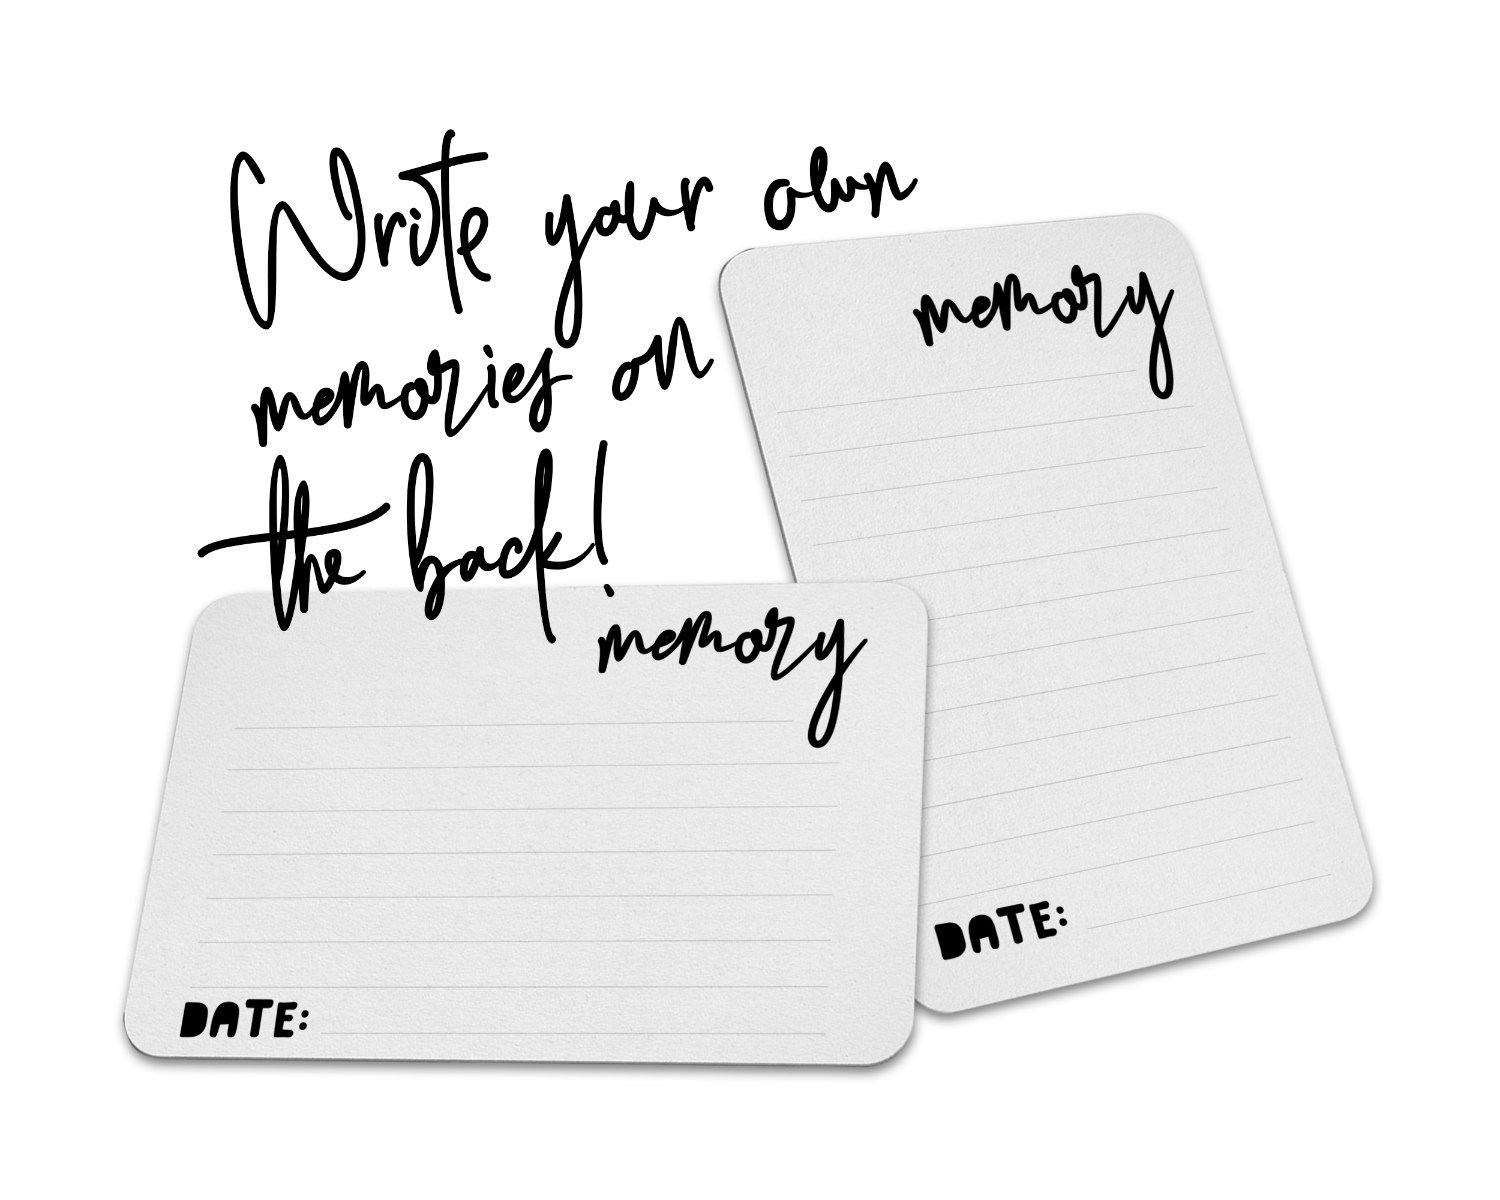 Write your own
memories on
the back!
memory
DATE:
memory
DATE: